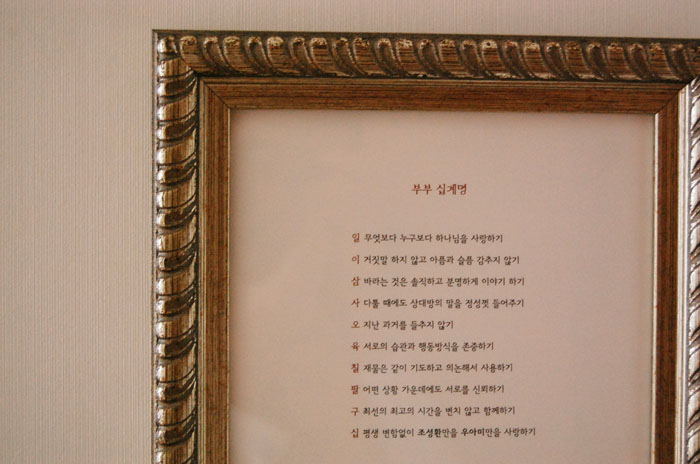 부부 십계명
일 무엇보다 누구보다 하나님을 사랑하기
이 거짓말 하지 않고 아픔과 슬픔 감추지 않기
삼 바라는 것은 솔직하고 분명하게 이야기 하기
사 다툴 때에도 상대방의 말을 정성껏 들어주기
오 지난 과거를 들추지 않기
육 서로의 습관과 행동방식을 존중하기
칠 재물은 같이 기도하고 의논해서 사용하기
팔 어떤 상황 가운데에도 서로를 신뢰하기
구 최선의 최고의 시간을 변치 않고 함께하기
십 평생 변함없이 조성환만을 우아미만을 사랑하기